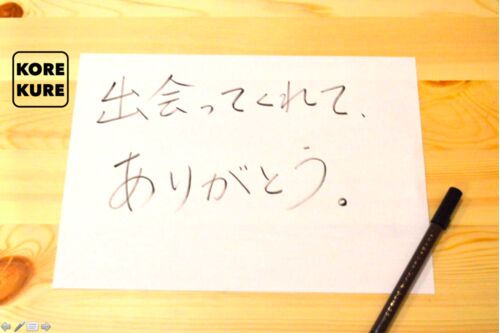 KORE
KURE
出会ってくれて、
ありがとう。